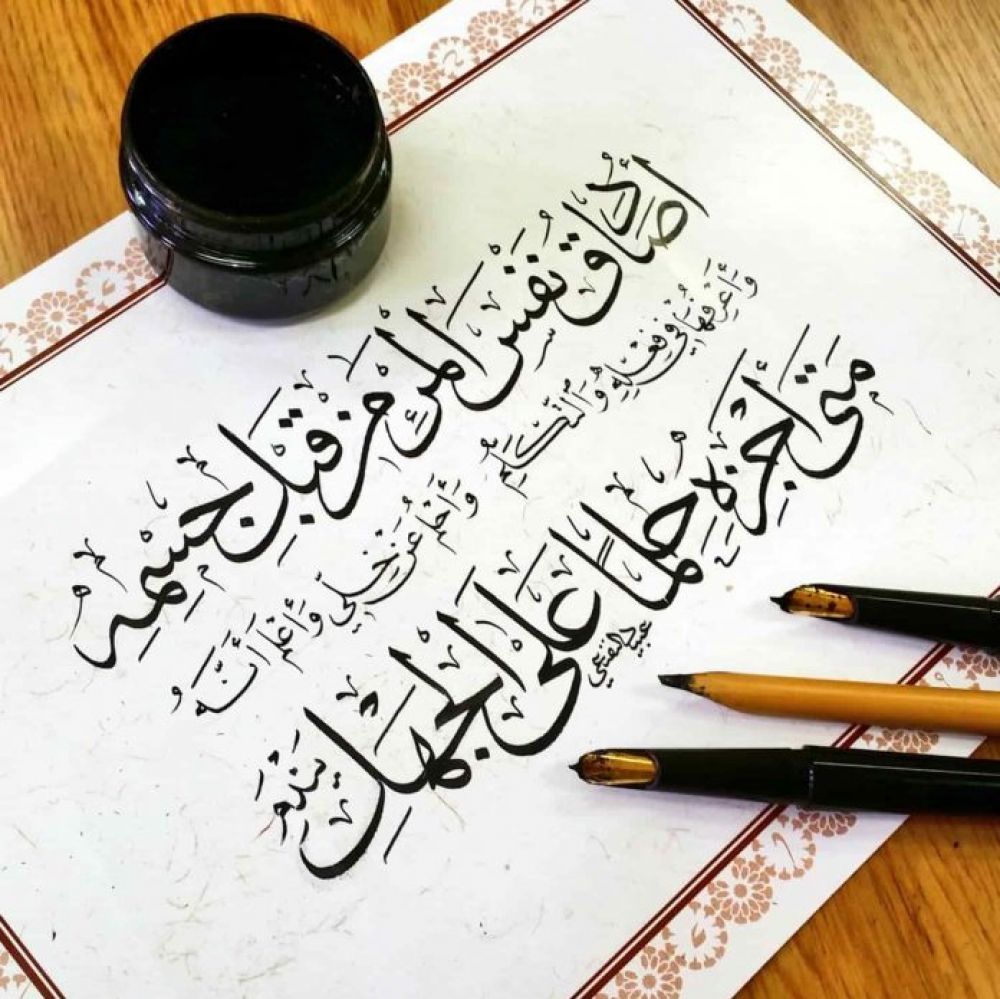 أُصَادِقُ نَفْسَ المَرْءِ مِنْ قَبْلِ جِسْمِهِ
وَأَعْرِفُهَا فِي فِعْلِهِ وَالتَّكَلُّمِ
وَأَحْلُمُ عَنْ خِلِّي وَأَعْلَمُ أَنَّهُ
مَتَى أَجْزِهِ حِلْمًا عَلَى الجَهْلِ يَنْدَمِ